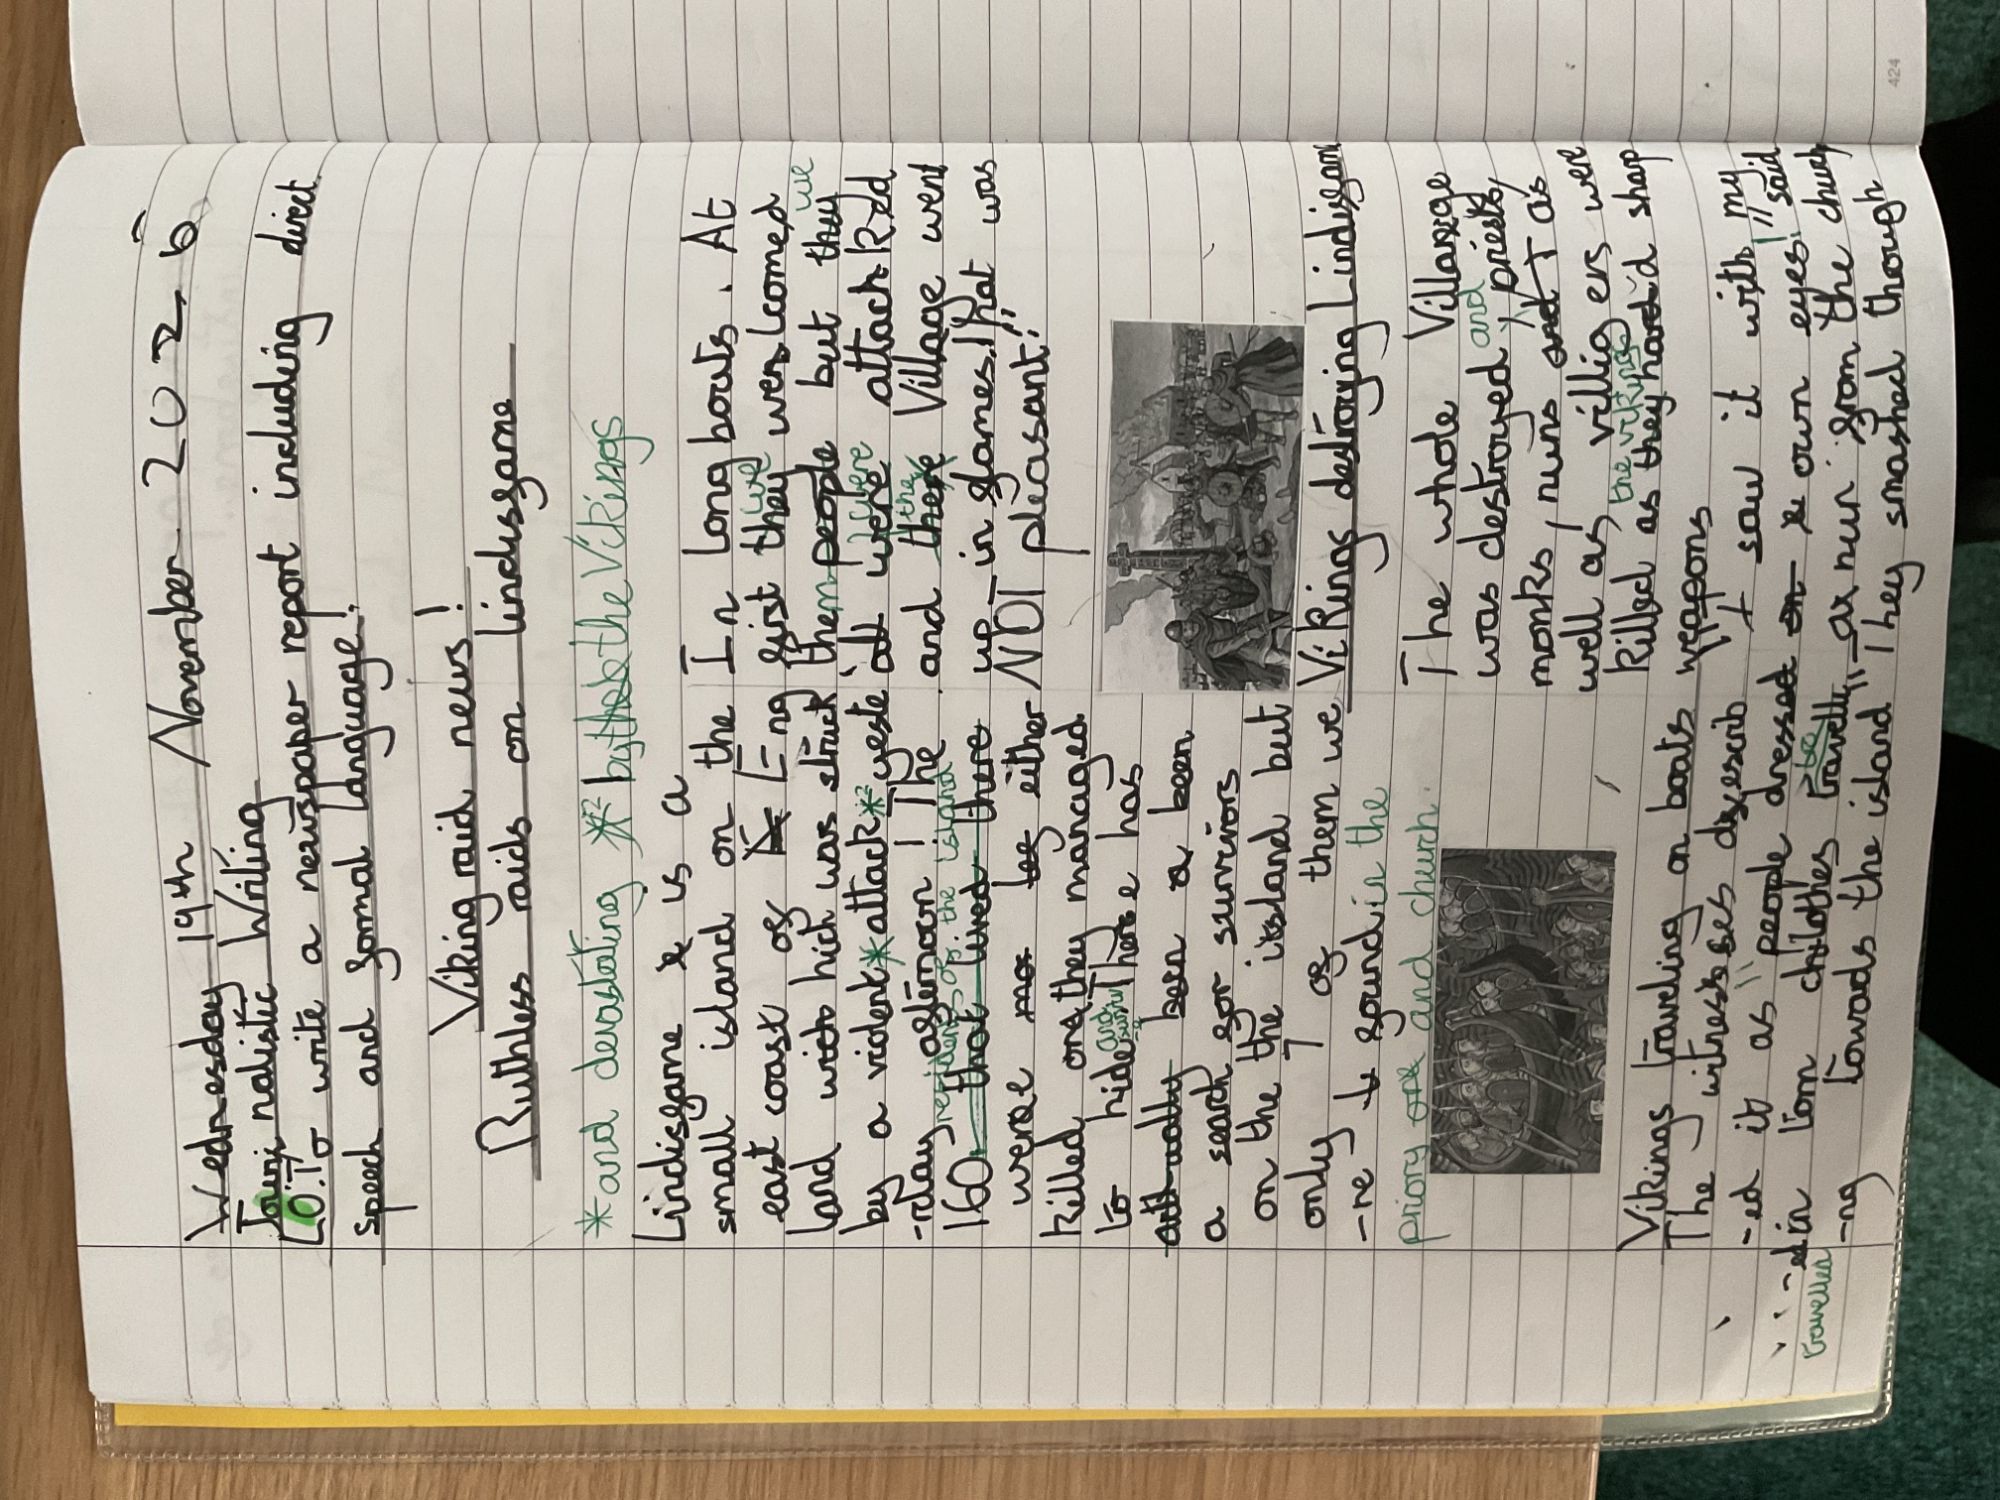 Wednesday 19th November 202
Journalistic Writing
L.O: To write a newspaper report including direct
speech and formal language!
Viking raid news!
Ruthless raids on lindisfarne
*and devastating *² by the Vikings
Lindisfarne is a
small island on the
east coast of Eng
land with hich was struck
by a violent * attack *² yeste
-rday afternoon! The
residents of the island
160 that lived there
were either
killed or they managed
to hide and survive. There has
been a
a search for survivors
on the the island but
only 7 of them we
-re found in the
priory and church.
Vikings traveling on boats
The witnesses describ
-ed it as "people dressed
in torn chlothes travelli
travelled
-ng towads the island"
In longboats. At
first they we were welcomed
them people but they we
all were were attacked
and there the Village went
up in flames! That was
NOT pleasant!"
Vikings destroying Lindisfarne
The whole Village
was destroyed and priests,
monks, nuns and as
well as villigers were
the vikings
killed as they had sharp
weapons
"I saw it with my
own eyes!" said
a nun from the church
"They smashed though
424